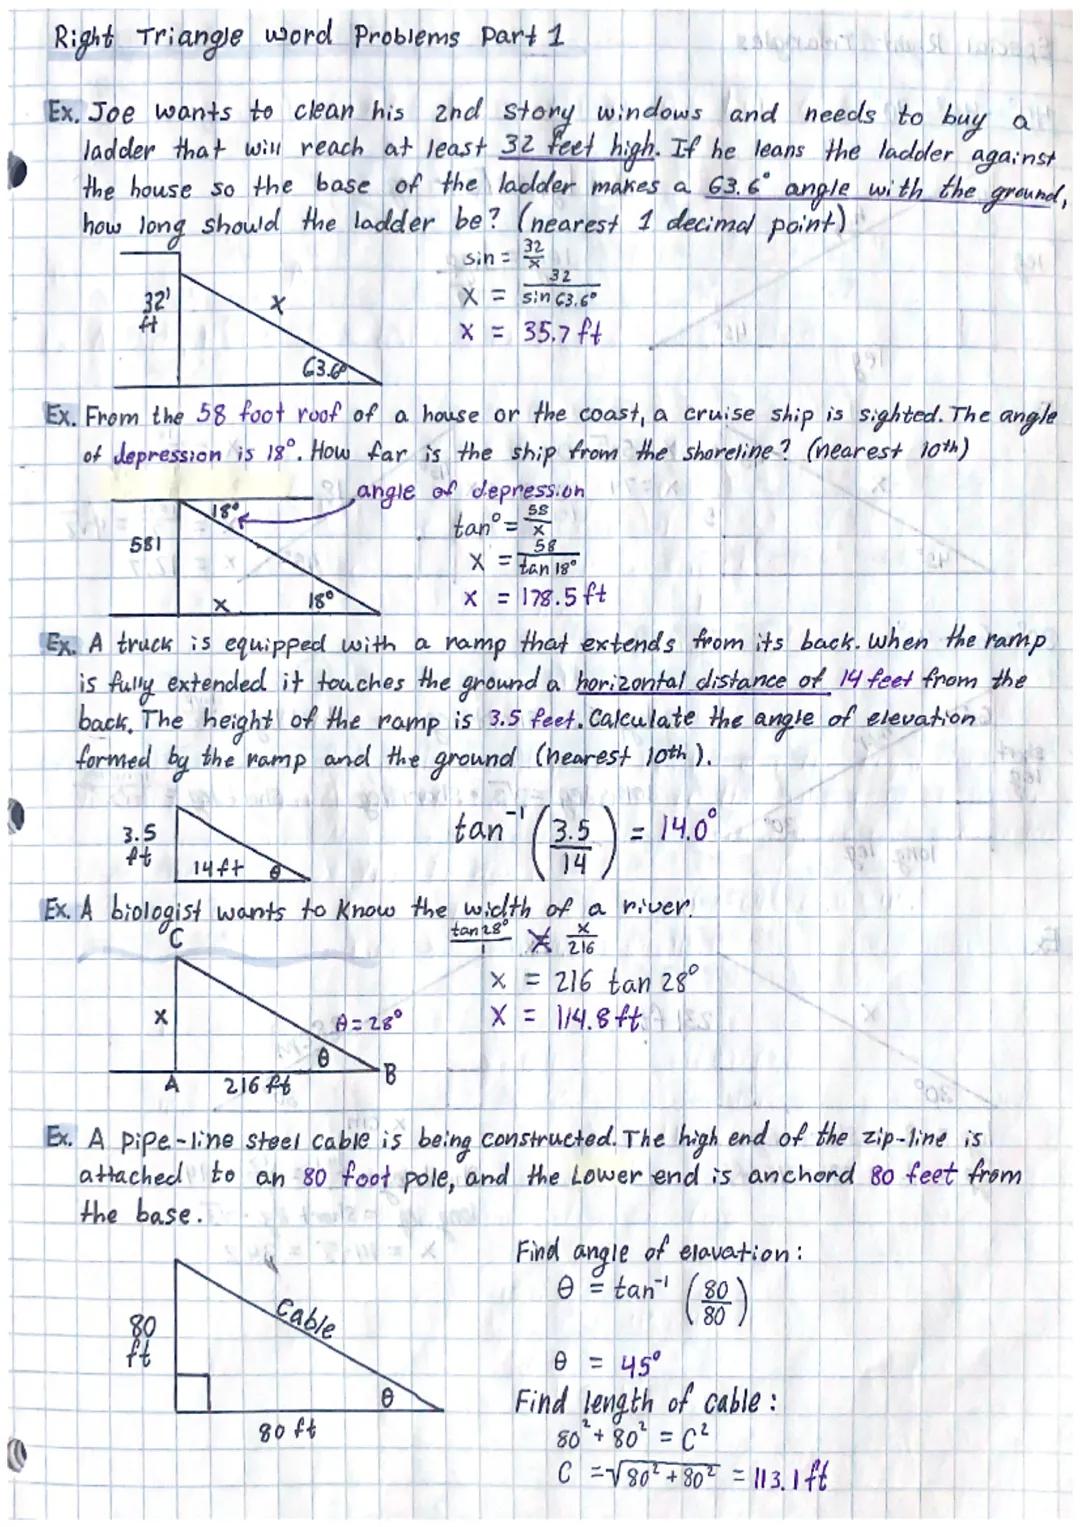 Right Triangle word Problems Part 1
Ex. Joe wants to clean his 2nd story windows and needs to buy a
ladder that will reach at least 32 feet high. If he leans the ladder against
the house so the base of the ladder makes a 63.6° angle with the ground,
how long should the ladder be? (nearest 1 decimal point)
sin = 32/x
x = 32/sin 63.6°
x = 35.7 ft
32'
ft
x
63.6°
Ex. From the 58 foot roof of a house or the coast, a cruise ship is sighted. The angle
of depression is 18°. How far is the ship from the shoreline? (nearest 10th)
angle of depression
18°
58'
x
18°
tan° = 58/x
x = 58/tan 18°
x = 178.5 ft
Ex. A truck is equipped with a ramp that extends from its back. When the ramp
is fully extended it touches the ground a horizontal distance of 14 feet from the
back. The height of the ramp is 3.5 feet. Calculate the angle of elevation
formed by the ramp and the ground (nearest 10th).
3.5
ft
14 ft
θ
tan⁻¹ (3.5/14) = 14.0°
Ex. A biologist wants to Know the width of a river.
C
x
θ = 28°
θ
A
216 ft
B
tan 28°/1 = x/216
x = 216 tan 28°
x = 114.8 ft
Ex. A pipe-line steel cable is being constructed. The high end of the zip-line is
attached to an 80 foot pole, and the Lower end is anchord 80 feet from
the base.
80
ft
Cable
θ
80 ft
Find angle of elavation:
θ = tan⁻¹ (80/80)
θ = 45°
Find length of cable:
80² + 80² = C²
C = √80² + 80² = 113.1 ft